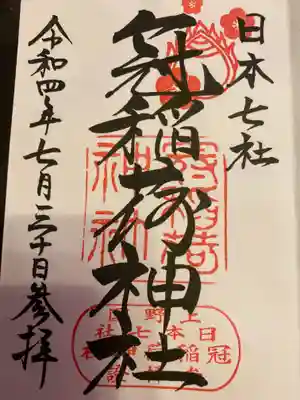 日本七社
冠稲荷神社
令和四年七月三十日参拝
上野国
日本七社
冠稲荷神社